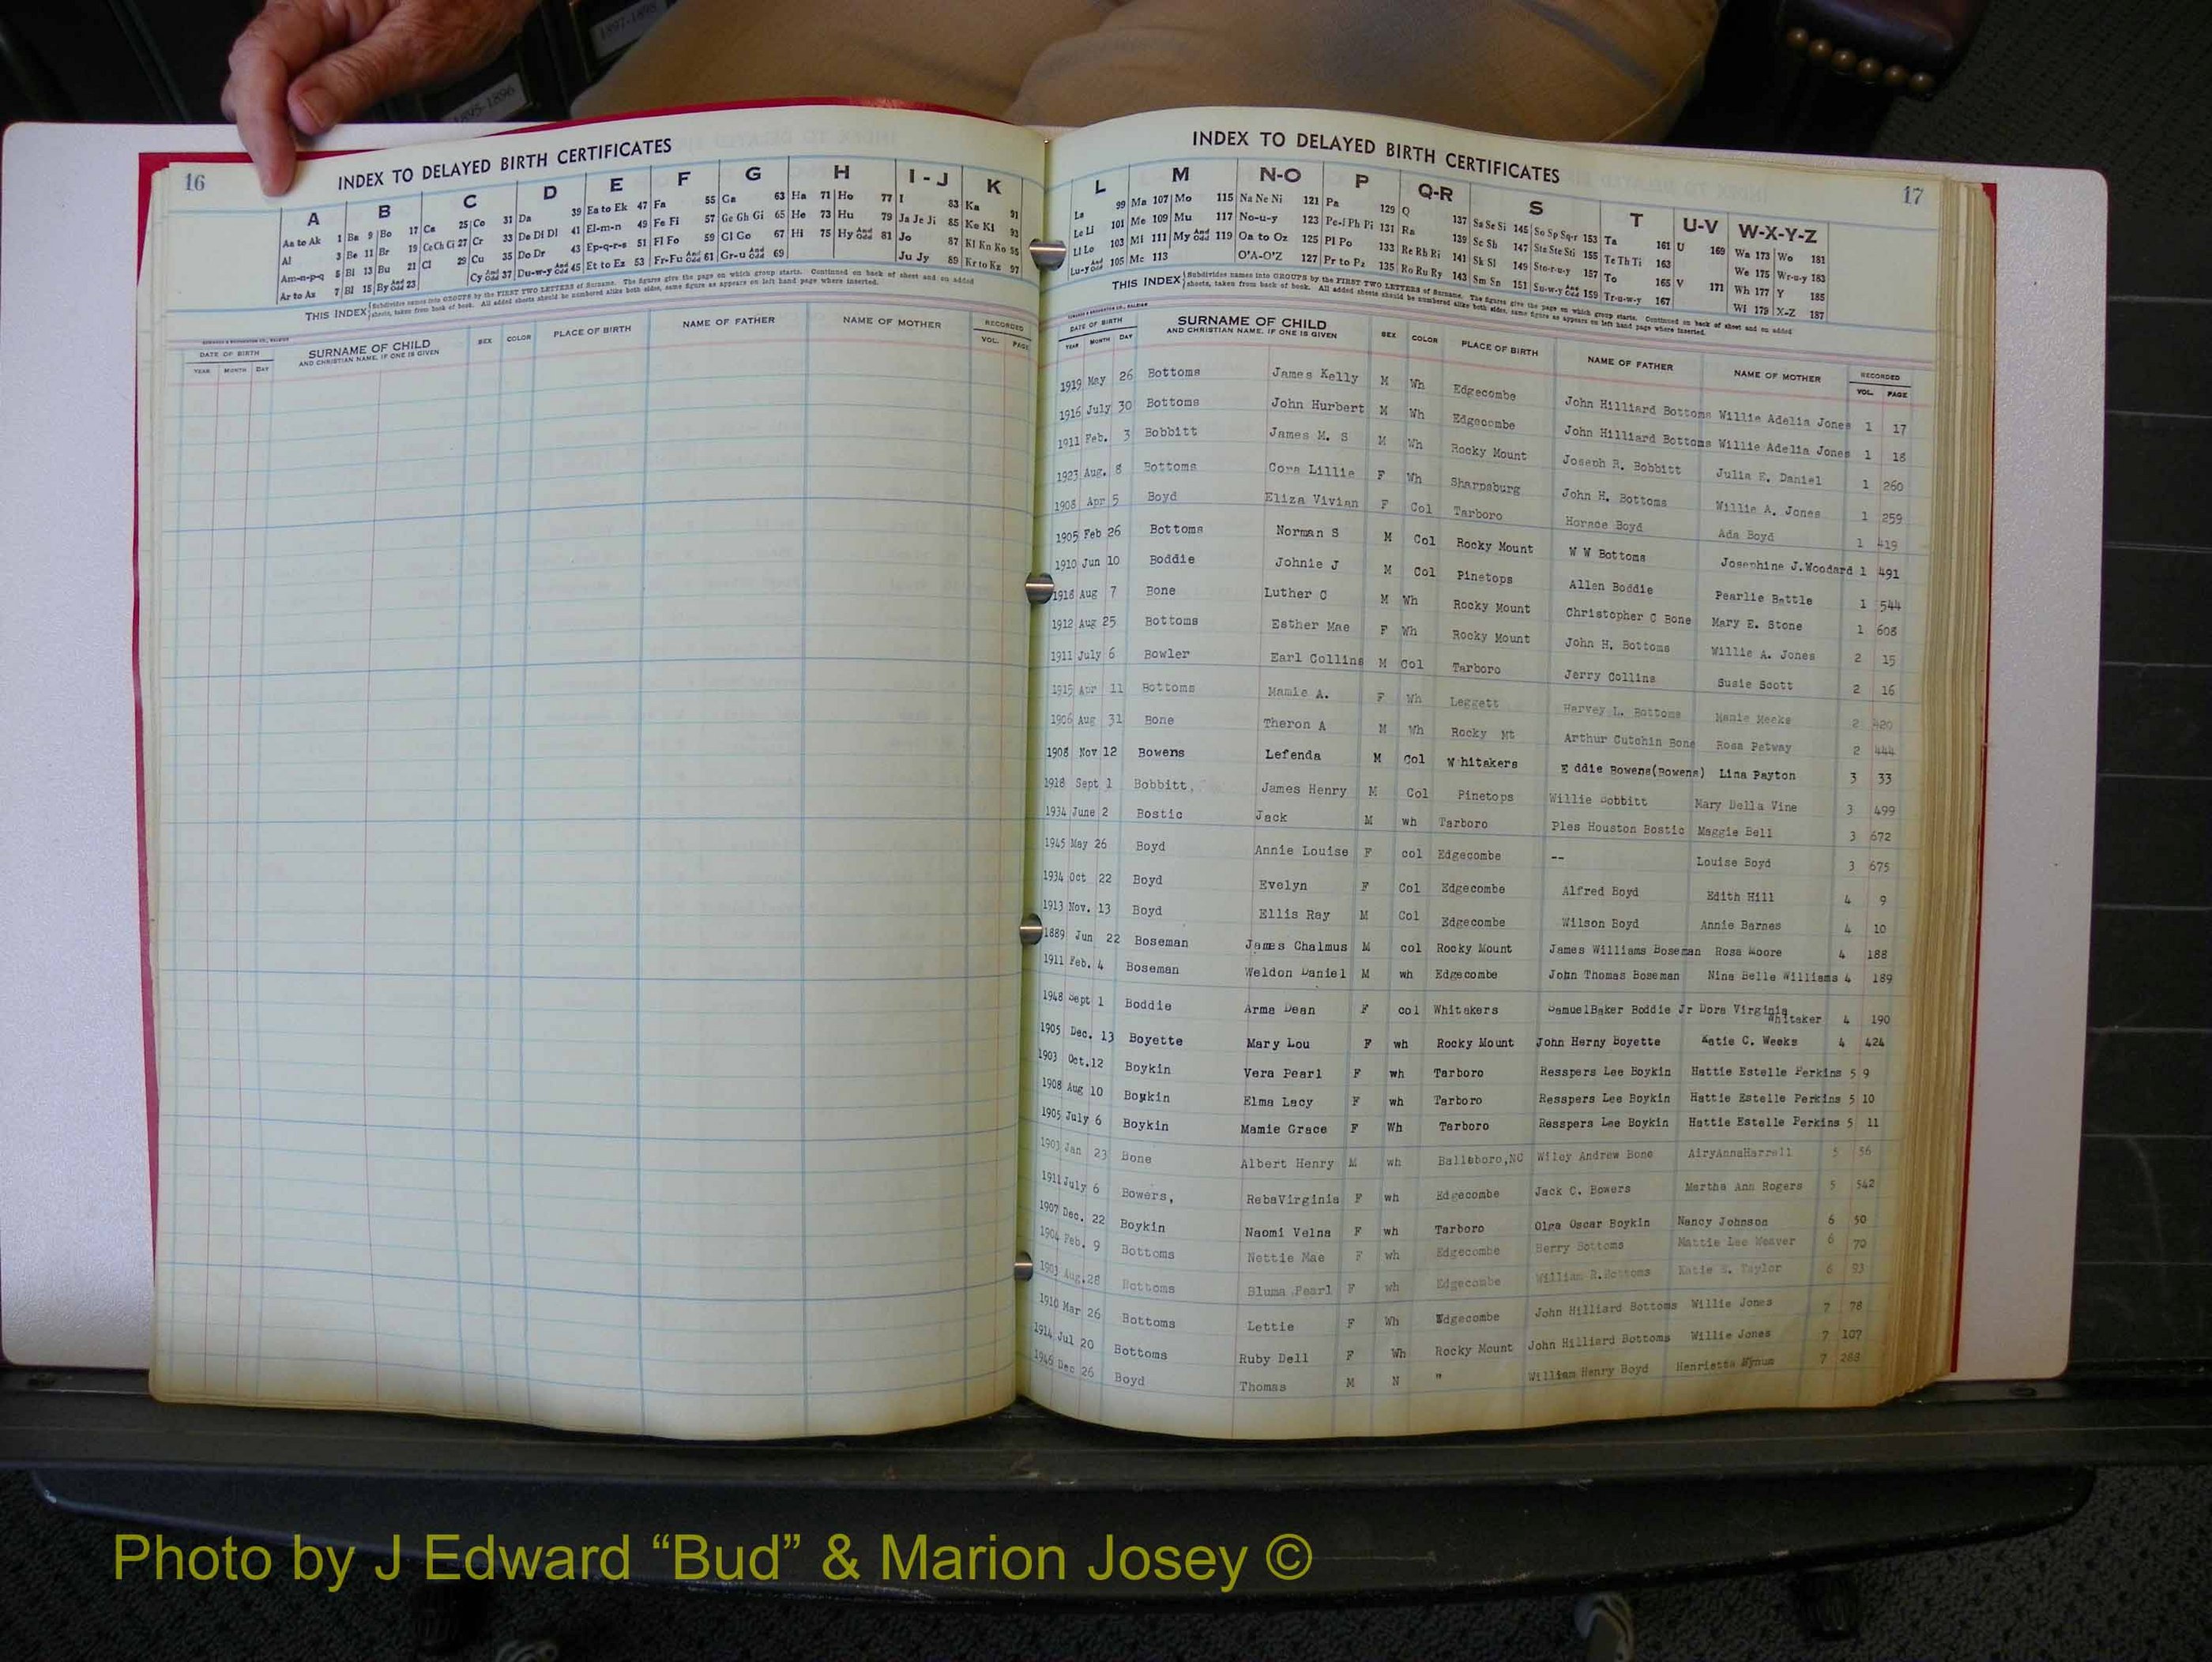 1897-1898
1895-1896
16
INDEX TO DELAYED BIRTH CERTIFICATES
A B C D E F G H I-J K
Aa to Ak 1 Ba 9 Bo 17 Ca 25 Co 31 Da 39 Ea to Ek 47 Fa 55 Ga 63 Ha 71 Ho 77 I 83 Ka 91
Al 3 Be 11 Br 19 Ce Ch Ci 27 Cr 33 De Di Dl 41 El-m-n 49 Fe Fi 57 Ge Gh Gi 65 He 73 Hu 79 Ja Je Ji 85 Ke Ki 93
Am-n-p-q 5 Bi 13 Bu 21 Cl 29 Cu 35 Do Dr 43 Ep-q-r-s 51 Fl Fo 59 Gl Go 67 Hi 75 Hy And Odd 81 Jo 87 Kl Kn Ko 95
Ar to Az 7 Bl 15 By And Odd 23 Cy And Odd 37 Du-w-y And Odd 45 Et to Ez 53 Fr-Fu And Odd 61 Gr-u And Odd 69 Ju Jy 89 Kr to Kz 97
THIS INDEX Subdivides names into GROUPS by the FIRST TWO LETTERS of Surname. The figures give the page on which group starts. Continued on back of sheet and on added
sheets, taken from back of book. All added sheets should be numbered alike both sides, same figure as appears on left hand page where inserted.
DATE OF BIRTH SURNAME OF CHILD SEX COLOR PLACE OF BIRTH NAME OF FATHER NAME OF MOTHER RECORDED
YEAR MONTH DAY AND CHRISTIAN NAME, IF ONE IS GIVEN VOL. PAGE
INDEX TO DELAYED BIRTH CERTIFICATES
17
L M N-O P Q-R S T U-V W-X-Y-Z
La 99 Ma 107 Mo 115 Na Ne Ni 121 Pa 129 Q 137 Sa Se Si 145 So Sp Sq-r 153 Ta 161 U 169 Wa 173 Wo 181
Le Li 101 Me 109 Mu 117 No-u-y 123 Pe-f Ph Pi 131 Ra 139 Sc Sh 147 Sta Ste Sti 155 Te Th Ti 163 We 175 Wr-u-y 183
Ll Lo 103 Mi 111 My And Odd 119 Oa to Oz 125 Pl Po 133 Re Rh Ri 141 Sk Sl 149 Sto-r-u-y 157 To 165 V 171 Wh 177 Y 185
Lu-y And Odd 105 Mc 113 O'A-O'Z 127 Pr to Pz 135 Ro Ru Ry 143 Sm Sn 151 Su-w-y And Odd 159 Tr-u-w-y 167 Wi 179 X-Z 187
THIS INDEX Subdivides names into GROUPS by the FIRST TWO LETTERS of Surname. The figures give the page on which group starts. Continued on back of sheet and on added
sheets, taken from back of book. All added sheets should be numbered alike both sides, same figure as appears on left hand page where inserted.
DATE OF BIRTH SURNAME OF CHILD SEX COLOR PLACE OF BIRTH NAME OF FATHER NAME OF MOTHER RECORDED
YEAR MONTH DAY AND CHRISTIAN NAME, IF ONE IS GIVEN VOL. PAGE
1919 May 26 Bottoms James Kelly M Wh Edgecombe John Hilliard Bottoms Willie Adelia Jones 1 17
1916 July 30 Bottoms John Hurbert M Wh Edgecombe John Hilliard Bottoms Willie Adelia Jones 1 18
1911 Feb. 3 Bobbitt James M. S M Wh Rocky Mount Joseph R. Bobbitt Julia E. Daniel 1 260
1923 Aug. 8 Bottoms Cora Lillie F Wh Sharpsburg John H. Bottoms Willie A. Jones 1 259
1908 Apr 5 Boyd Eliza Vivian F Col Tarboro Horace Boyd Ada Boyd 1 419
1905 Feb 26 Bottoms Norman S M Col Rocky Mount W W Bottoms Josephine J.Woodard 1 491
1910 Jun 10 Boddie Johnie J M Col Pinetops Allen Boddie Pearlie Battle 1 544
1918 Aug 7 Bone Luther C M Wh Rocky Mount Christopher C Bone Mary E. Stone 1 608
1912 Aug 25 Bottoms Esther Mae F Wh Rocky Mount John H. Bottoms Willie A. Jones 2 15
1911 July 6 Bowler Earl Collins M Col Tarboro Jerry Collins Susie Scott 2 16
1915 Apr 11 Bottoms Mamie A. F Wh Leggett Harvey L. Bottoms Mamie Meeks 2 420
1906 Aug 31 Bone Theron A M Wh Rocky Mt Arthur Cutchin Bone Rosa Petway 2 444
1908 Nov 12 Bowens Lefenda M Col Whitakers Eddie Bowens(Bowens) Lina Payton 3 33
1918 Sept 1 Bobbitt, James Henry M Col Pinetops Willie Bobbitt Mary Della Vine 3 499
1934 June 2 Bostic Jack M wh Tarboro Ples Houston Bostic Maggie Bell 3 672
1945 May 26 Boyd Annie Louise F col Edgecombe -- Louise Boyd 3 675
1934 Oct 22 Boyd Evelyn F Col Edgecombe Alfred Boyd Edith Hill 4 9
1913 Nov. 13 Boyd Ellis Ray M Col Edgecombe Wilson Boyd Annie Barnes 4 10
1889 Jun 22 Boseman James Chalmus M col Rocky Mount James Williams Boseman Rosa Moore 4 188
1911 Feb. 4 Boseman Weldon Daniel M wh Edgecombe John Thomas Boseman Nina Belle Williams 4 189
1948 Sept 1 Boddie Arma Dean F col Whitakers SamuelBaker Boddie Jr Dora Virginia Whitaker 4 190
1905 Dec. 13 Boyette Mary Lou F wh Rocky Mount John Herny Boyette Katie C. Weeks 4 424
1903 Oct.12 Boykin Vera Pearl F wh Tarboro Resspers Lee Boykin Hattie Estelle Perkins 5 9
1908 Aug 10 Boykin Elma Lacy F wh Tarboro Resspers Lee Boykin Hattie Estelle Perkins 5 10
1905 July 6 Boykin Mamie Grace F Wh Tarboro Resspers Lee Boykin Hattie Estelle Perkins 5 11
1903 Jan 23 Bone Albert Henry M wh Battleboro,NC Wiley Andrew Bone AiryAnnaHarrell 5 56
1911 July 6 Bowers, RebaVirginia F wh Edgecombe Jack C. Bowers Martha Ann Rogers 5 542
1907 Dec. 22 Boykin Naomi Velna F wh Tarboro Olga Oscar Boykin Nancy Johnson 6 50
1904 Feb. 9 Bottoms Nettie Mae F wh Edgecombe Berry Bottoms Mattie Lee Weaver 6 70
1903 Aug.28 Bottoms Bluma Pearl F wh Edgecombe William R.Bottoms Katie S. Taylor 6 93
1910 Mar 26 Bottoms Lettie F Wh Edgecombe John Hilliard Bottoms Willie Jones 7 78
1914 Jul 20 Bottoms Ruby Dell F Wh Rocky Mount John Hilliard Bottoms Willie Jones 7 107
1946 Dec 26 Boyd Thomas M N " William Henry Boyd Henrietta Bynum 7 288
Photo by J Edward “Bud” & Marion Josey ©